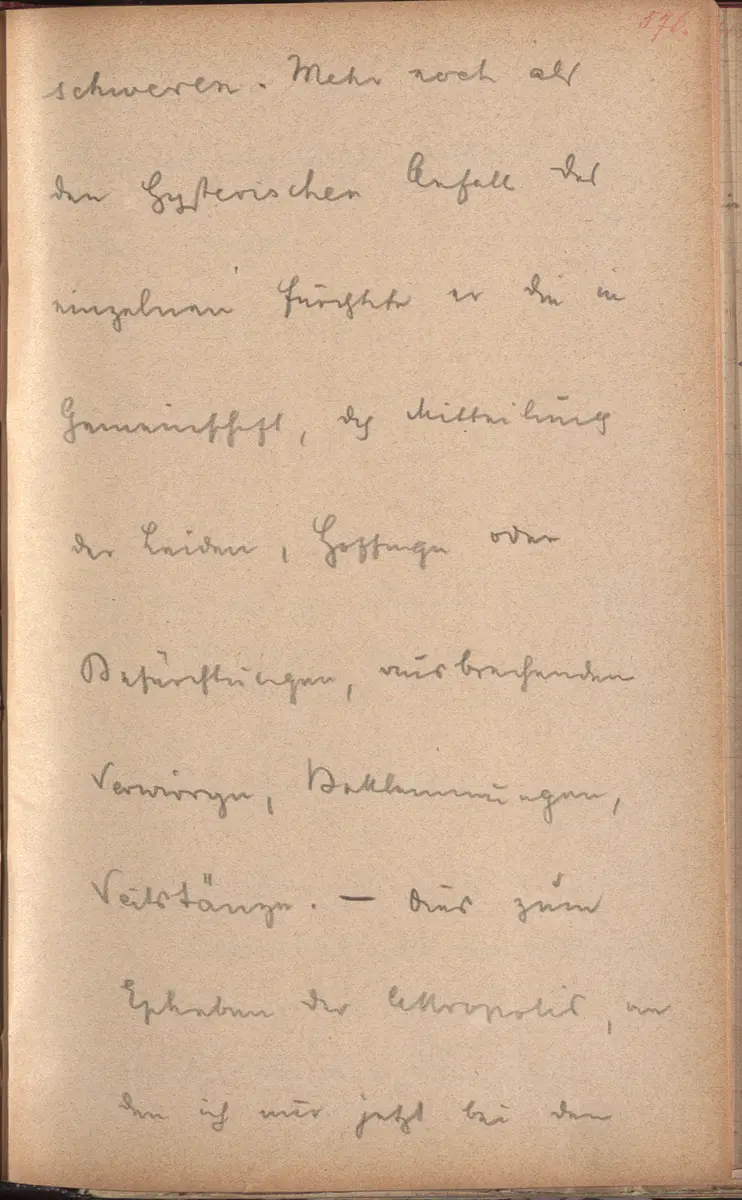 576.
schweren. Mehr noch als
den Hysterischen Anfall des
einzelnen fürchtete er die in
Gemeinschaft, durch Mitteilung
der Leiden, Hoffnungen oder
Befürchtungen, ausbrechenden
Verwirrungen, Beklemmungen,
Veitstänze. — Dies zum
Epheben der Akropolis, an
den ich nur jetzt bei den